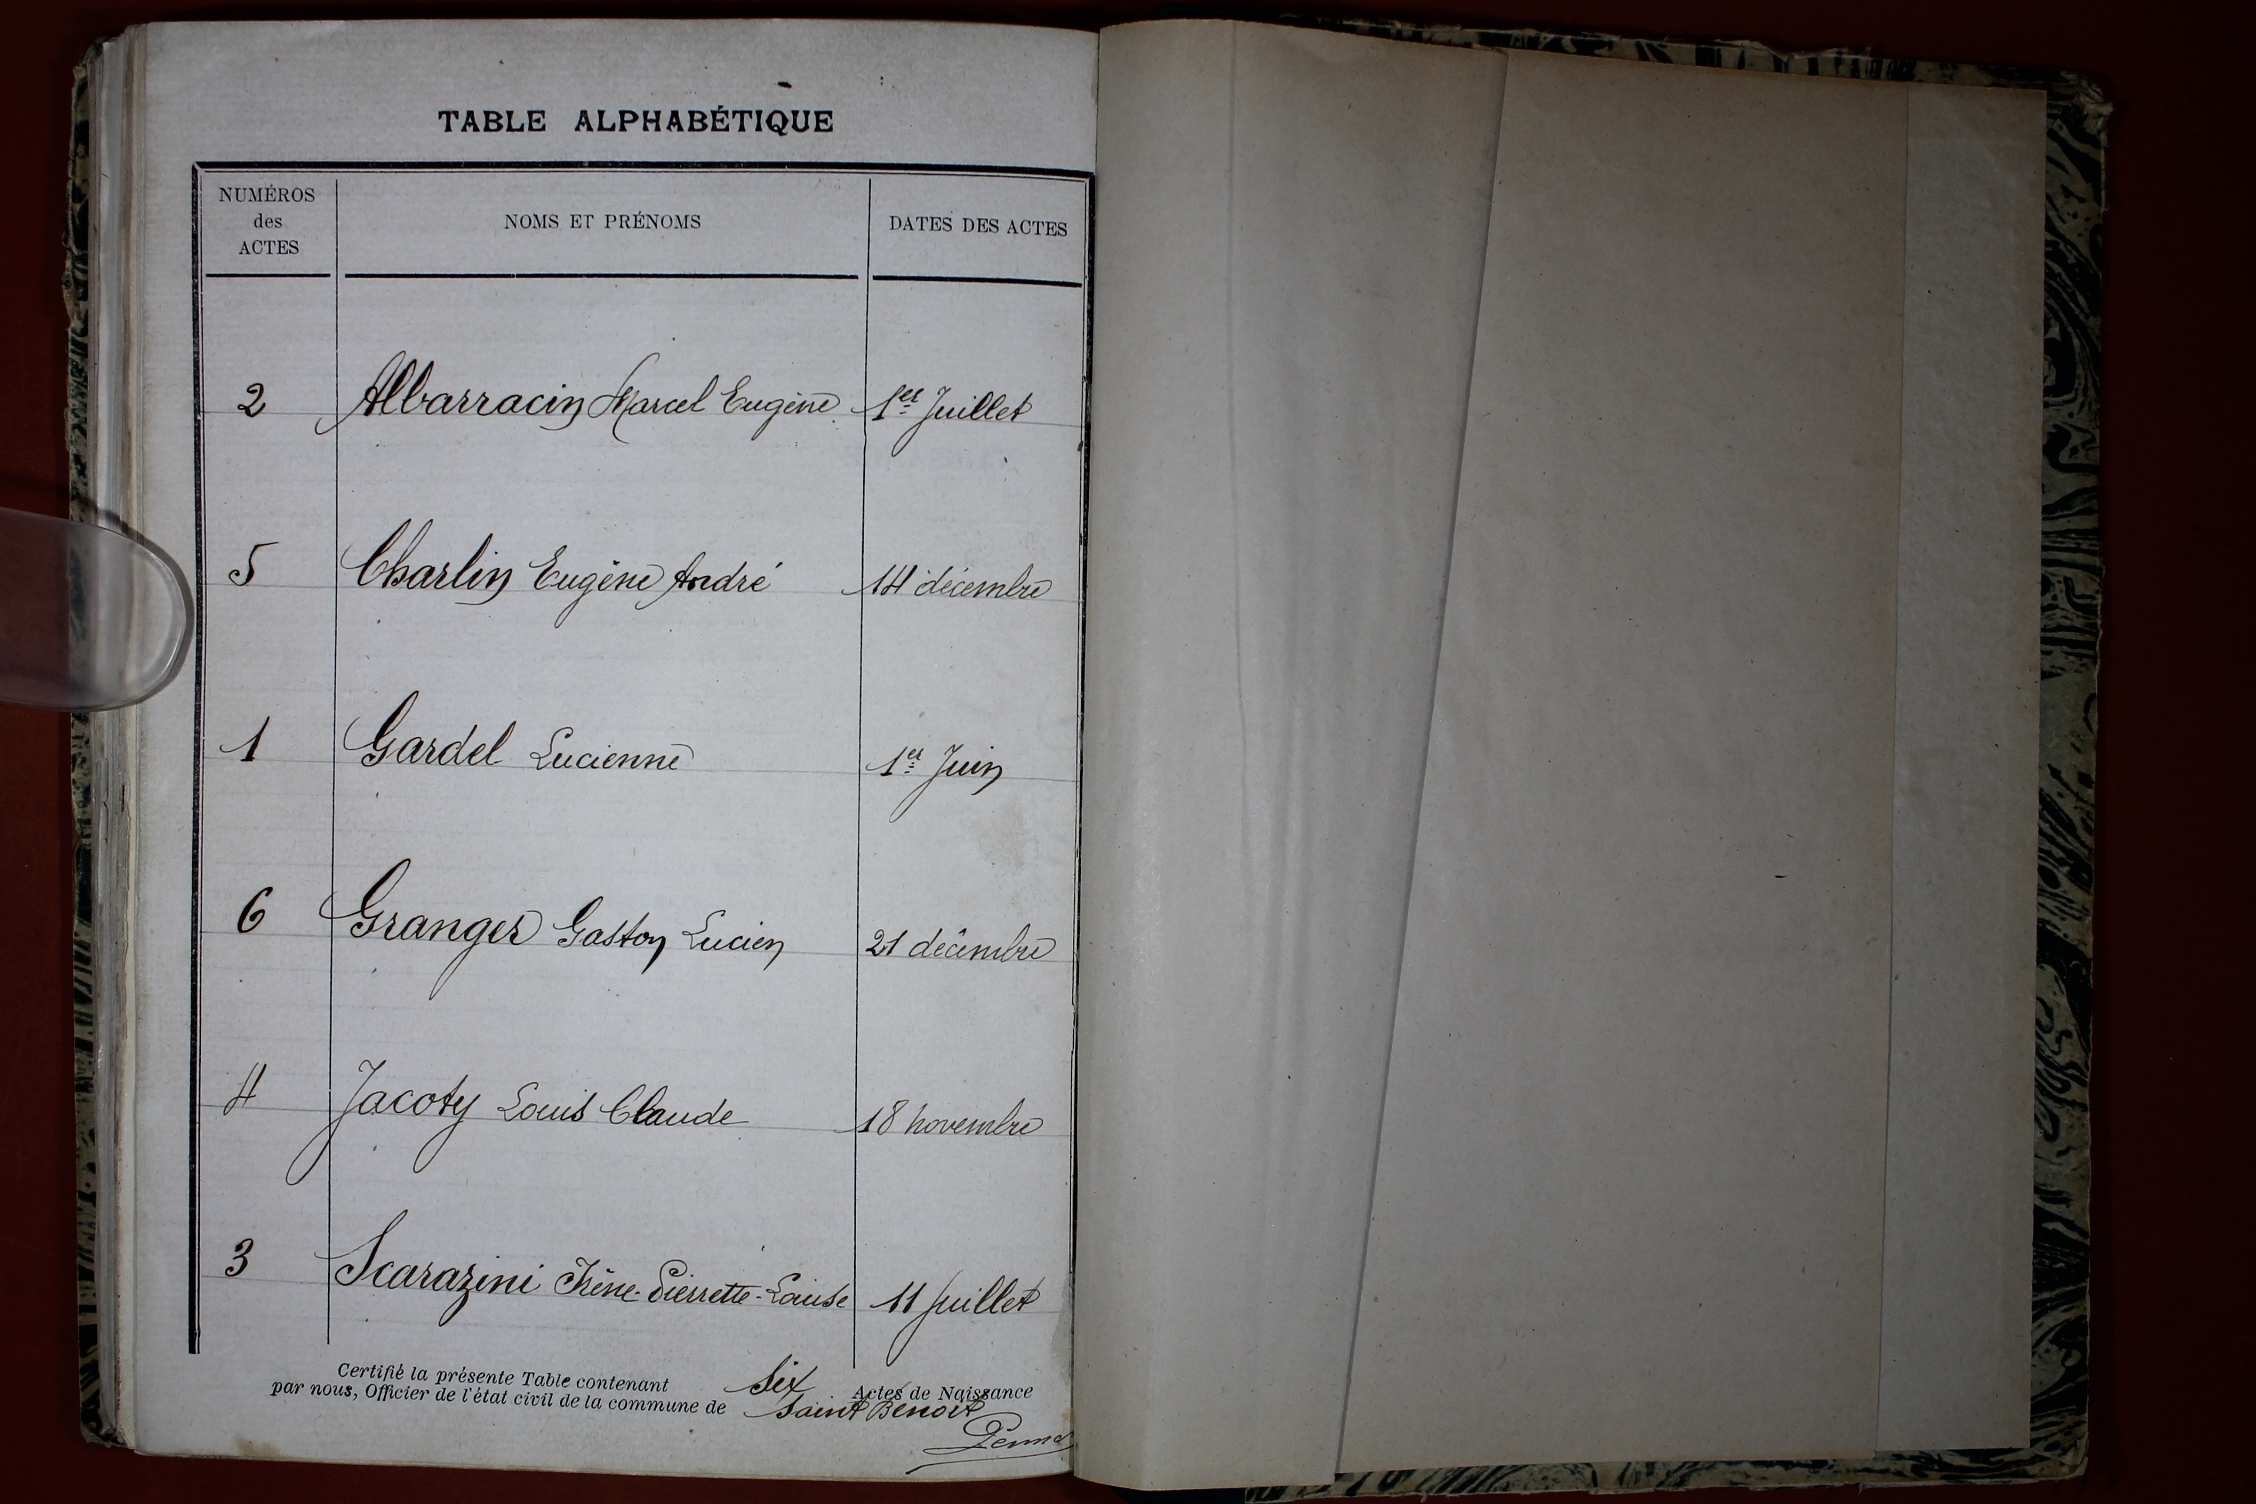 TABLE ALPHABÉTIQUE
NUMÉROS des ACTES
NOMS ET PRÉNOMS
DATES DES ACTES
2 Albarracin Marcel Eugène 1er Juillet
5 Charlin Eugène André 14 décembre
1 Gardel Lucienne 1er Juin
6 Granger Gaston Lucien 21 décembre
4 Jacoty Louis Claude 18 novembre
3 Scarazini Irène-Pierrette-Louise 11 Juillet
Certifié la présente Table contenant Six Actes de Naissance
par nous, Officier de l'état civil de la commune de Saint Benoit